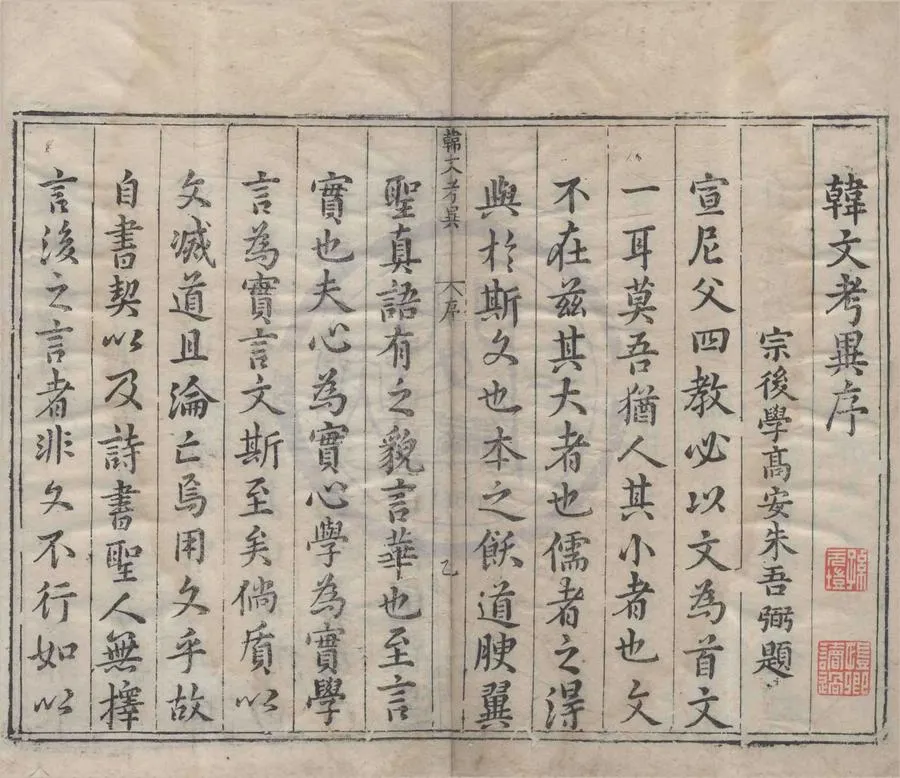 韓文考異序
宗後學髙安朱吾弼題
宣尼父四教必以文為首文
一耳莫吾猶人其小者也文
不在兹其大者也儒者之淂
與扵斯文也本之飫道腴翼
韓文考異
序
乙
聖真語有之貌言華也至言
實也夫心為實心學為實學
言為實言文斯至矣倘質以
文滅道且淪亡焉用文乎故
自書契以及詩書聖人無擇
言後之言者非文不行如以